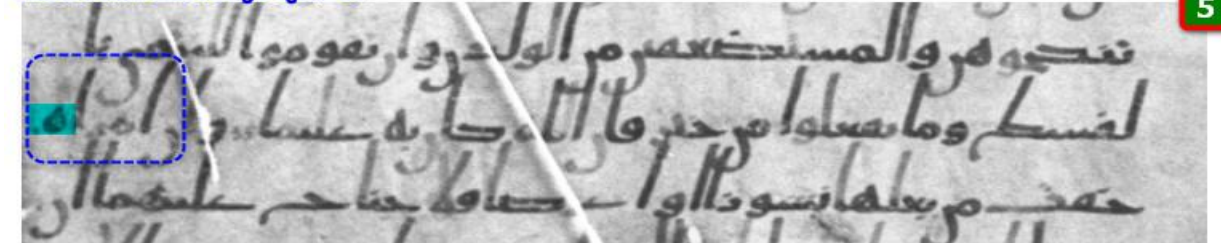 تنكحوهن والمستضعفين من الولدن وان تقوموا لليتمى با
لقسط وما تفعلوا من خير فان الله كان به عليما وان امراه
خفت من بعلها نشوزا او اعرضا فلا جناح عليهما ان
5